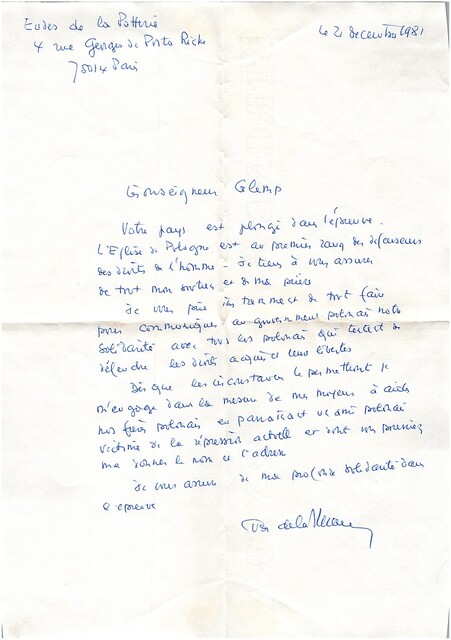 Eudes de la Potterie
4 rue Georges de Porto Riche
75014 Paris
le 21 decembre 1981
Monseigneur Glemp
Votre pays est plongé dans l'épreuve.
L'Eglise de Pologne est au premier rang des defenseurs
des droits de l'homme - Je tiens à vous assurer
de tout mon soutien et de ma prière
Je vous prie instamment de tout faire
pour communiquer au gouvernement polonais notre
solidarité avec tous les polonais qui luttent
défendre les droits acquis et leurs libertés
Dès que les circonstances le permettront je
m'engage dans la mesure de mes moyens à aider
nos frères polonais en parrainant un ami polonais
victime de la répression actuelle et dont vous pourriez
me donner le nom et l'adresse
Je vous assure de ma profonde solidarité dans
l'epreuve